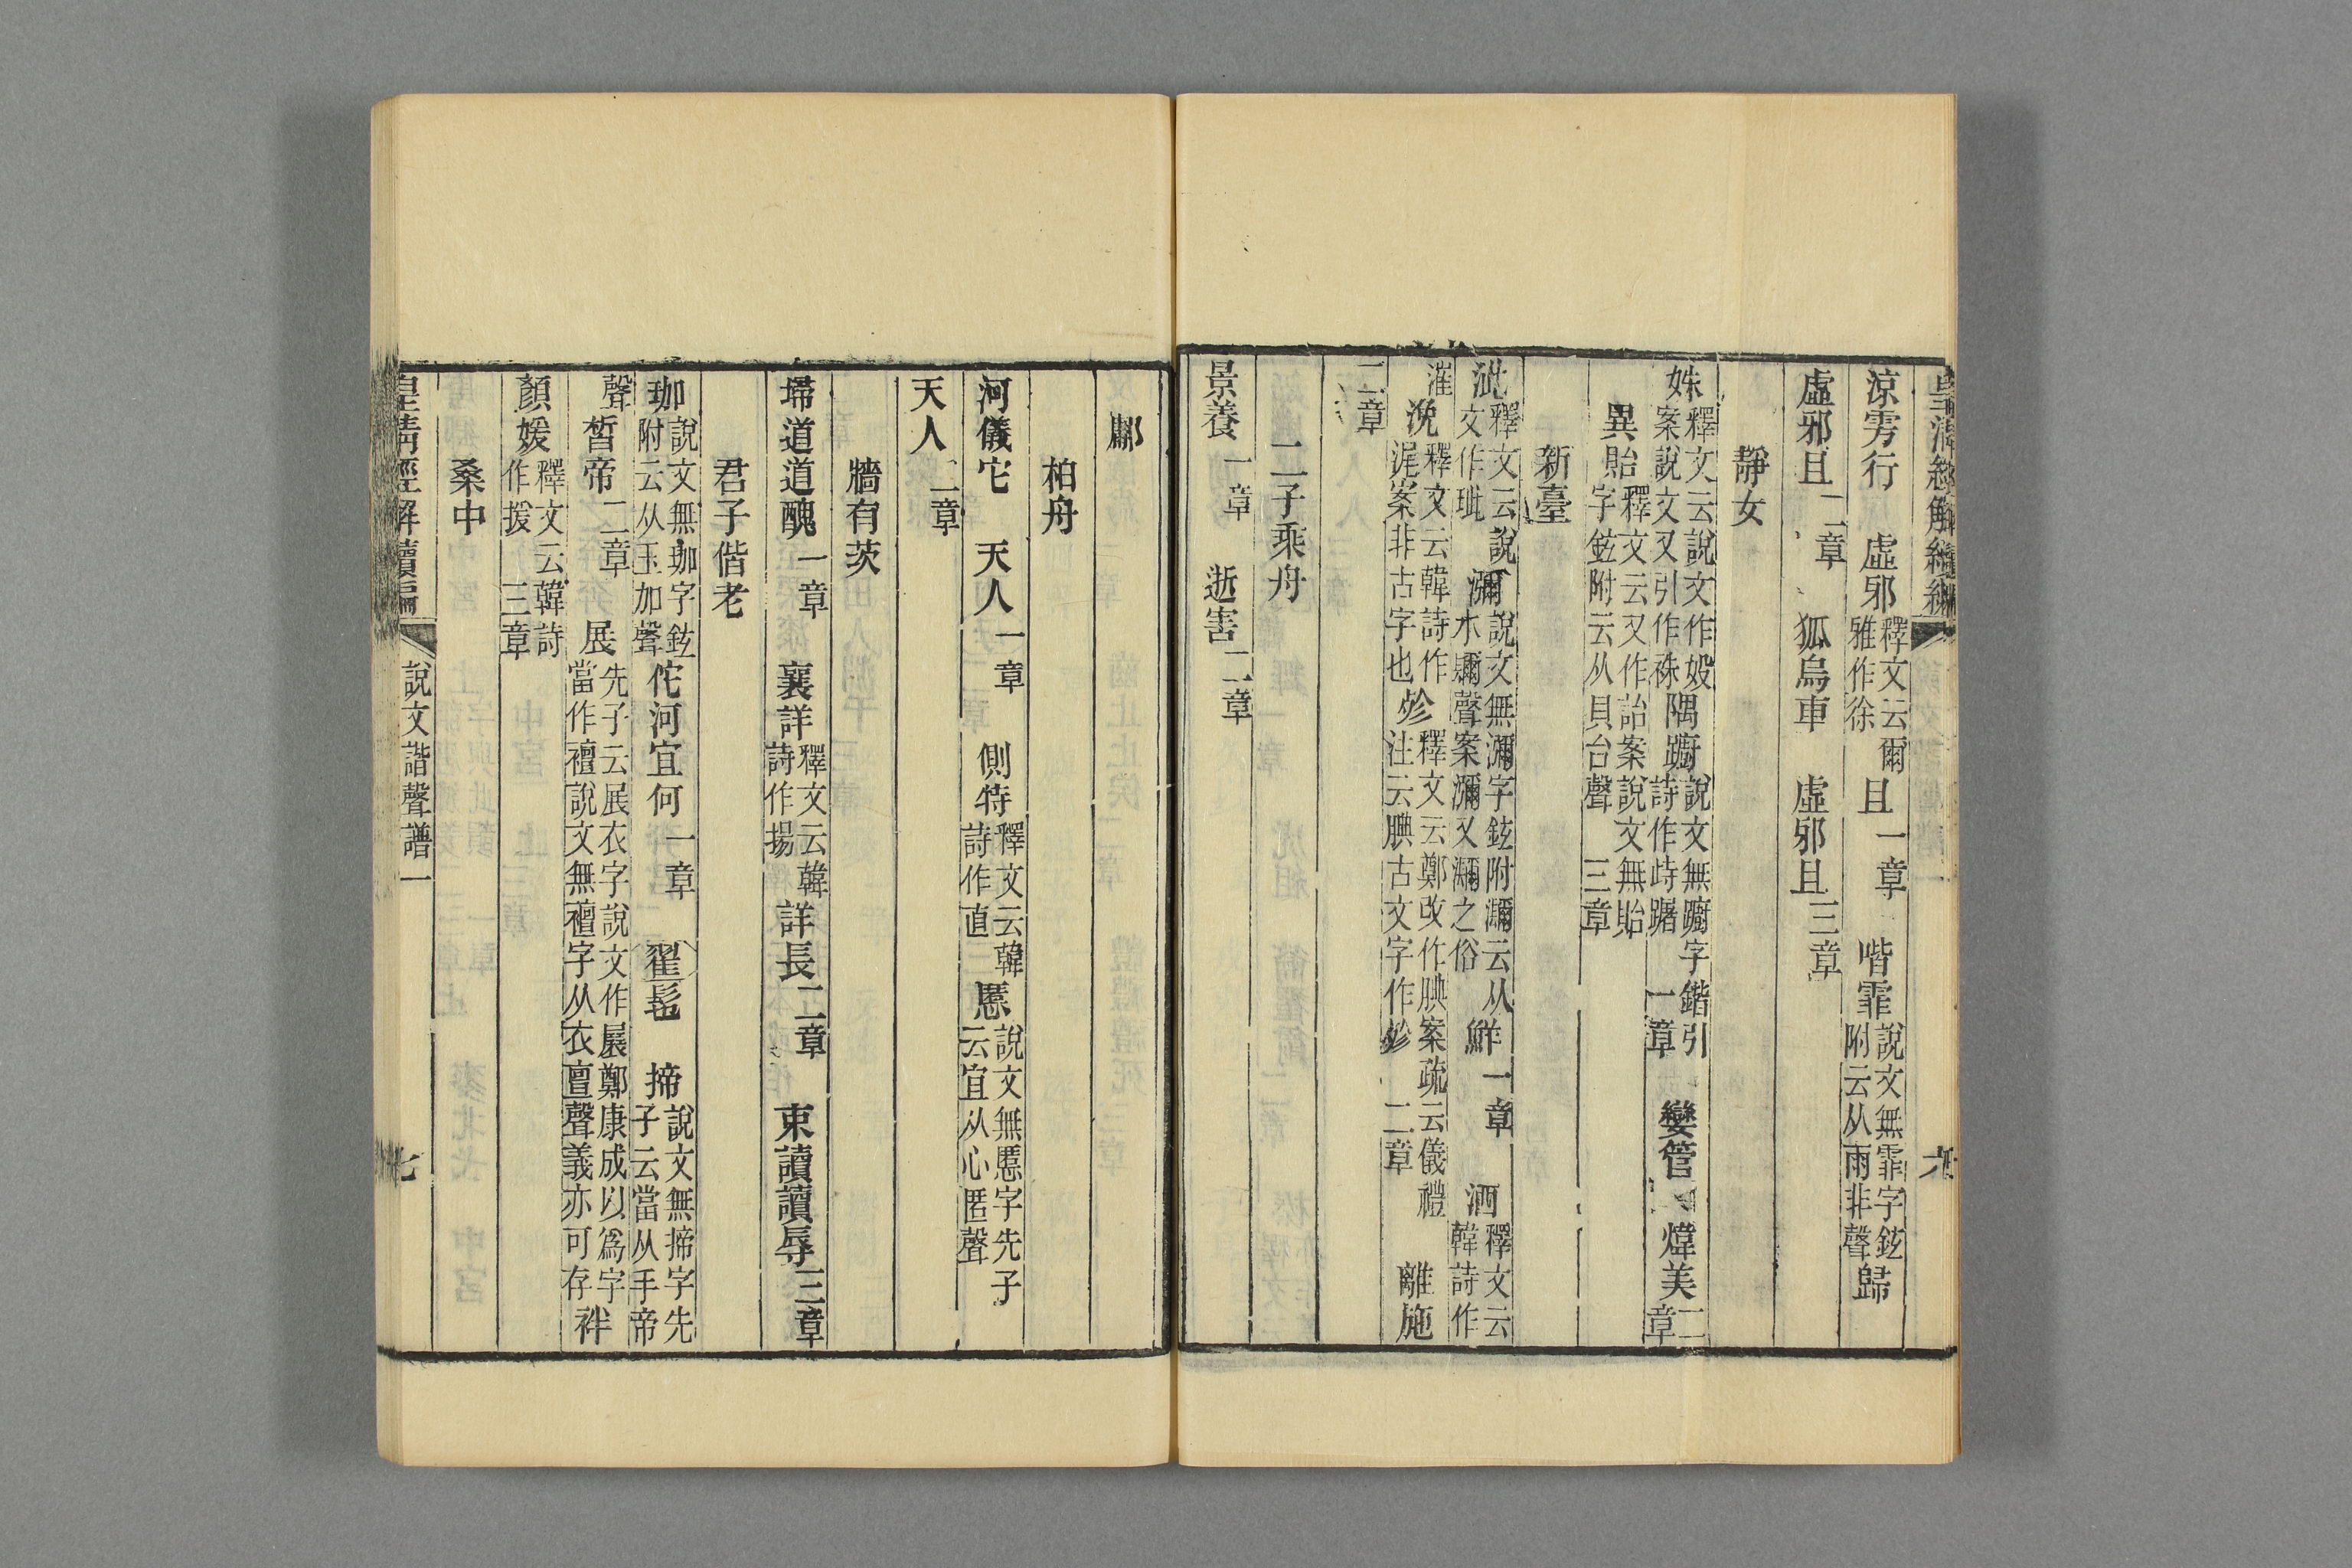 皇清經解續編
六
涼雱行　虛邪釋文云爾雅作徐　且一章　喈霏說文無霏字鉉附云从雨非聲歸
虛邪且二章　狐烏車　虛邪且三章
靜女
姝釋文云說文作㚥案說文又引作袾隅躕說文無躕字鍇引詩作峙躇一章　孌管　煒美二章
異貽釋文云又作詒案說文無貽字鉉附云从貝台聲三章
新臺
泚釋文云說文作玼　瀰說文無瀰字鉉附瀰云从水爾聲案瀰又濔之俗　鮮一章　洒釋文云韓詩作
漼　浼釋文云韓詩作浘案非古字也殄釋文云鄭改作腆案疏云儀禮注云腆古文字作殄二章　離施
三章
二子乘舟
景養一章　逝害二章
鄘
柏舟
河儀它　天人一章　側特釋文云韓詩作直慝說文無慝字先子云宜从心匿聲
天人二章
牆有茨
埽道道醜一章　襄詳釋文云韓詩作揚詳長二章　束讀讀辱三章
君子偕老
珈說文無珈字鉉附云从玉加聲佗河宜何一章　翟髢　揥說文無揥字先子云當从手帝
聲晳帝二章　展先子云展衣字說文作襢鄭康成以爲字當作襢說文無襢字从衣亶聲義亦可存袢
顏媛釋文云韓詩作援三章
桑中
皇清經解續編　說文諧聲譜一
七